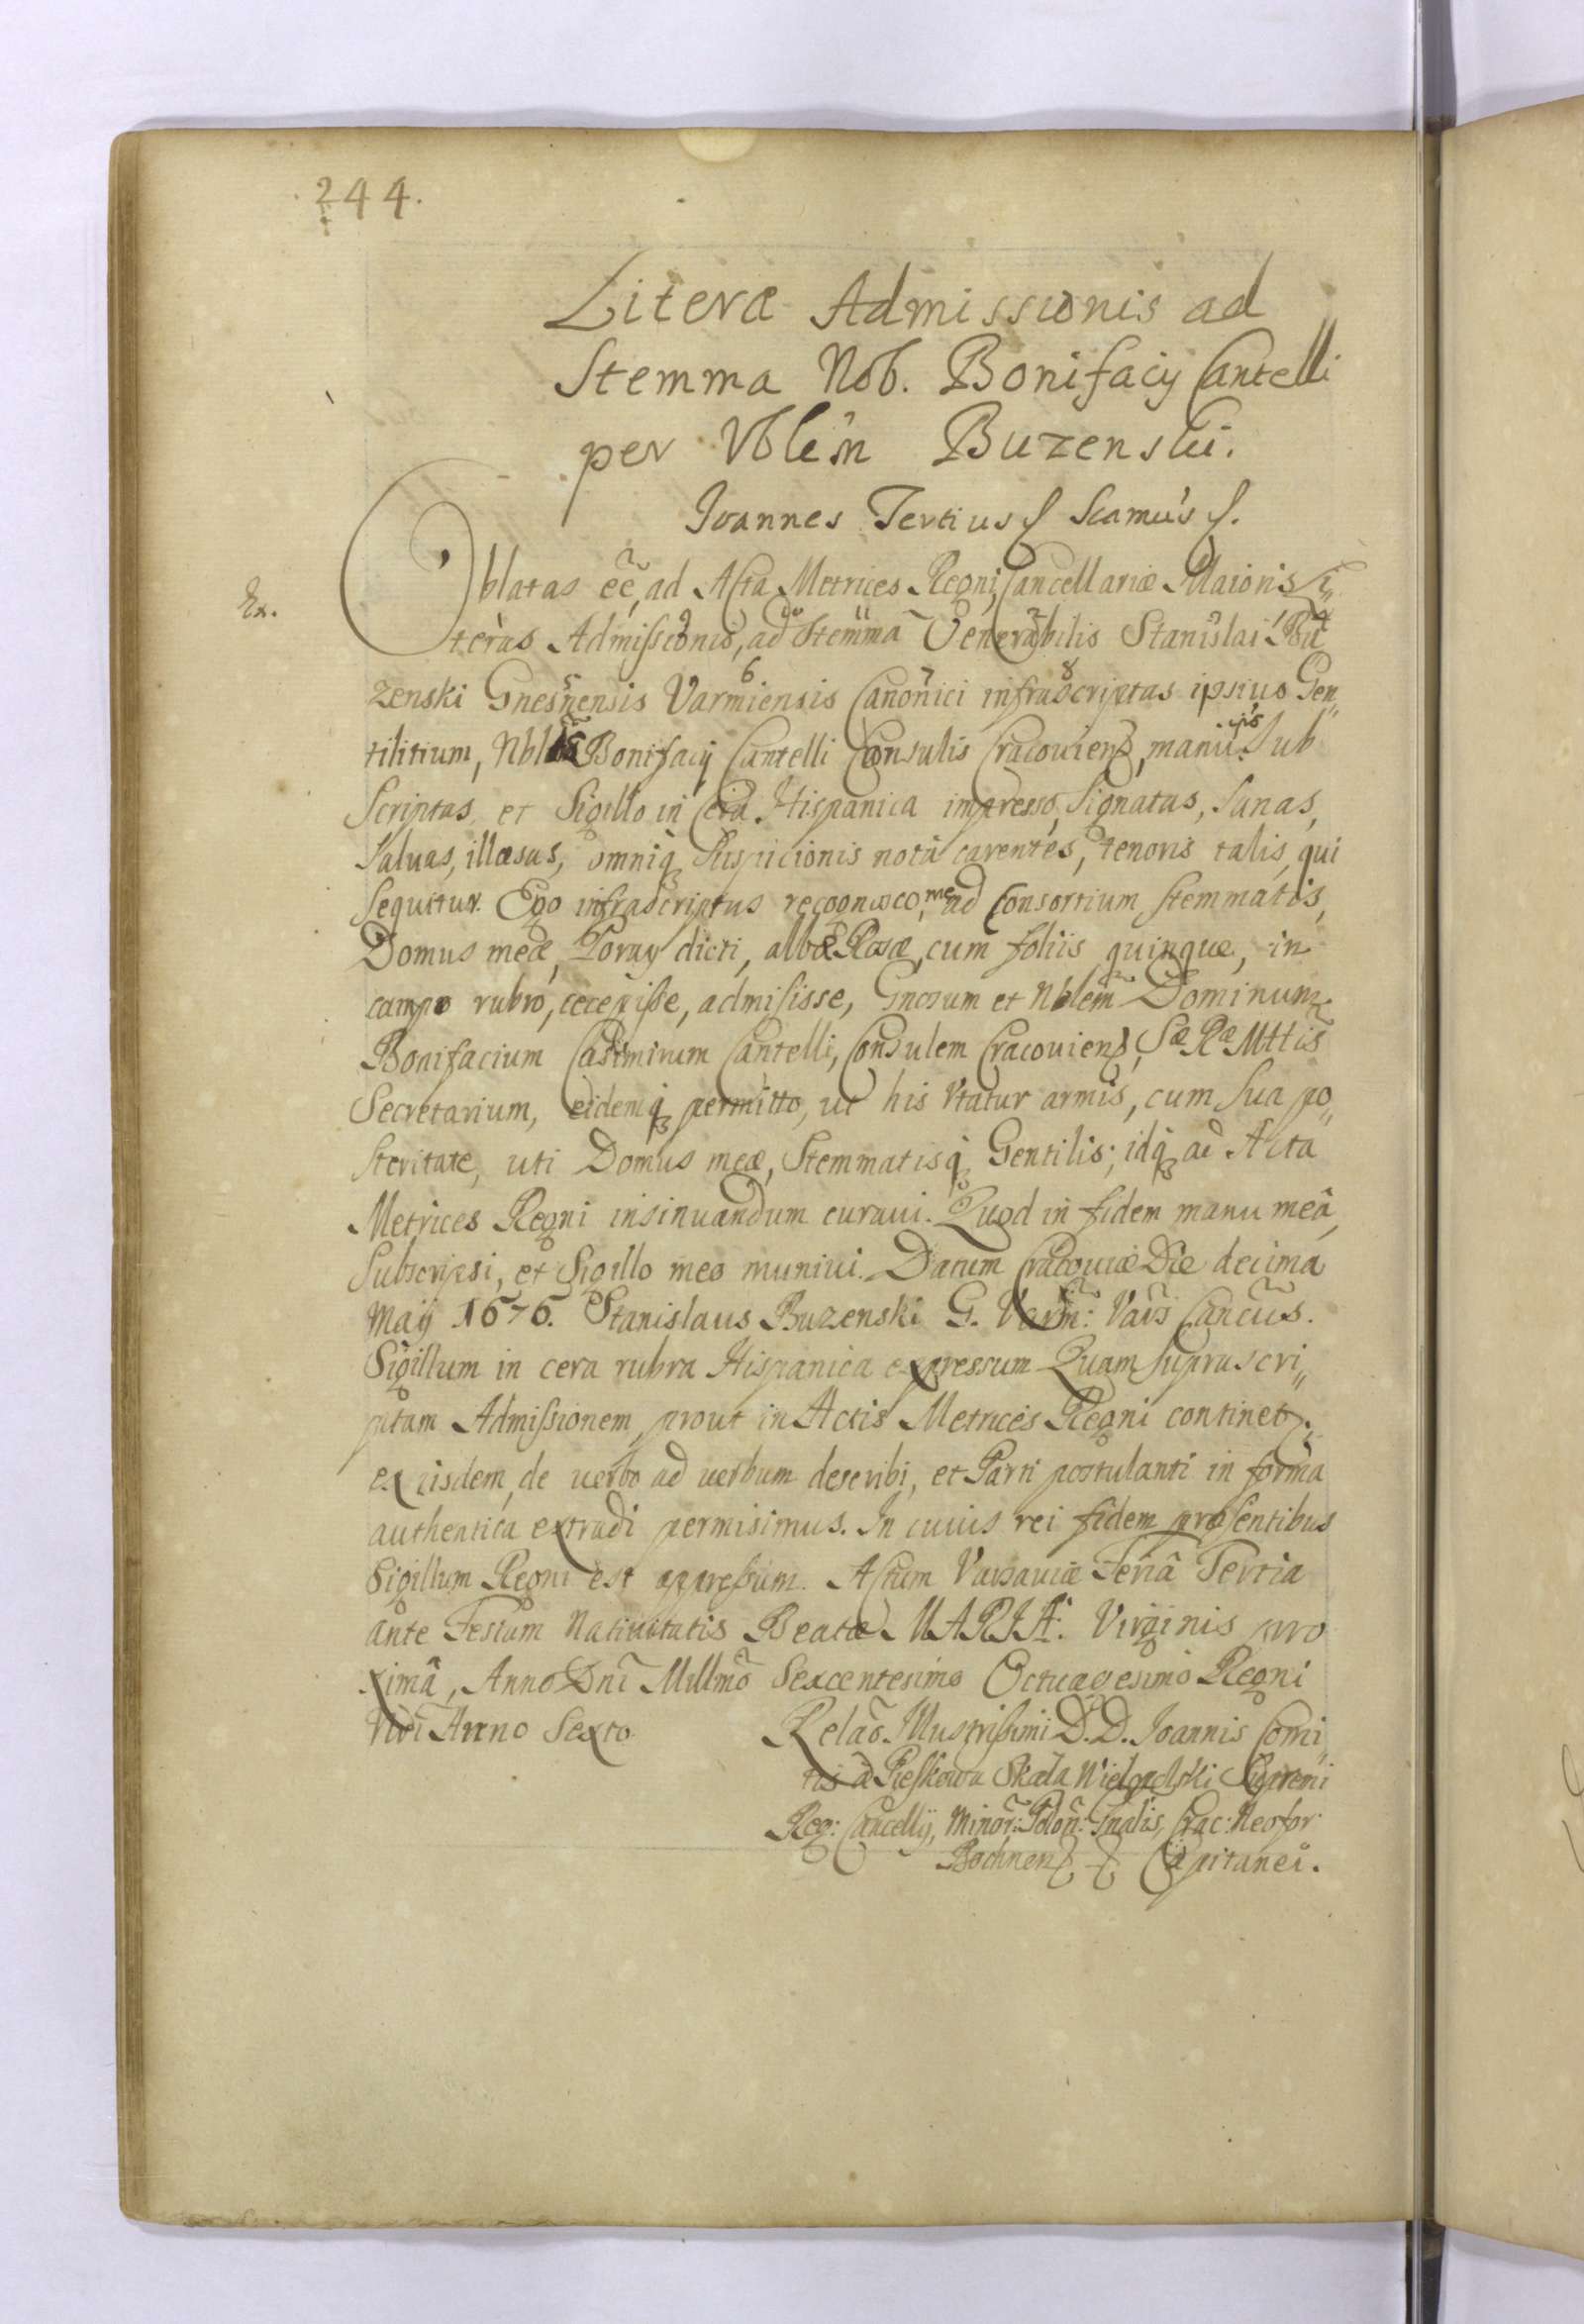 244.
Literæ Admissionis ad
Stemma Nob. Bonifacij Cantelli
per Vblem Buzenski.
Joannes Tertius Scamus
Ex.
Oblatas eẽ, ad Acta Metrices Regni, Cancellariæ Maioris Li„
teras Admissionis, ad Stemma Venerabilis Stanislai Bu
zenski Gnesnensis Varmiensis Canonici infrascriptas ipsius Gen„
tilitium, Nblis Bonifacij Cantelli Consulis Cracouien, manu ipsius Sub
scriptas, et Sigillo in Cera Hispanica impresso, Signatas, Sanas,
Saluas, illæsas, omniq suspicionis notâ carentes, tenoris talis, qui
sequitur. Ego infrascriptus recognosco, me ad Consortium stemmatis,
Domus meæ, Poray dicti, albæ Rosæ, cum foliis quinque, in
campo rubro, cecepisse, admisisse, Gnosum et Nblem Dominum
Bonifacium Casimirum Cantelli, Consulem Cracouien, Sæ Ræ Mttis
Secretarium, eidemq permitto, ut his vtatur armis, cum sua po„
steritate, uti Domus meæ, Stemmatisq Gentilis; idq ad Acta
Metrices Regni insinuandum curaui. Quod in fidem manu meâ
Subscripsi, et Sigillo meo muniui. Datum Cracouiæ Die decima
Maij 1676. Stanislaus Buzenski G. Varm: Cancus.
Sigillum in cera rubra Hispanica expressum Quam suprascri„
ptam Admissionem, prout in Actis Metrices Regni continet.
ex iisdem, de verbo ad verbum describi, et Parti postulanti in forma
authentica extradi permisimus. In cuius rei fidem præsentibus
Sigillum Regni est appressum. Actum Varsauiæ Feriâ Tertia
ante Festum Natiuitatis Beatæ MARIÆ Virginis pro
ximâ, Anno Dni Millmo Sexcentesimo Octuagesimo Regni
Nri Anno Sexto.
Relao Illustrissimi D. D. Joannis Comi„
tis à Pieskowa Skała Wielopolski Supremi
Reg: Cancellij, Minor: Polon: Gnalis, Crac: Neofor:
Bochnen Capitanei.